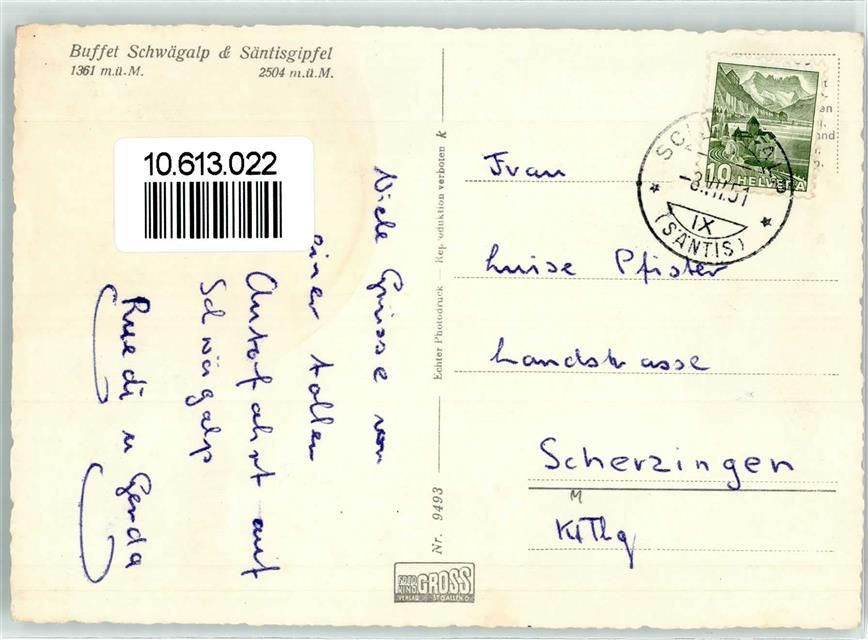 Buffet Schwägalp & Säntisgipfel
1361 m.ü.M. 2504 m.ü.M.
10.613.022
Viele Grüsse von
einer tollen
Autofahrt auf
Schwägalp
Ruedi u Gerda
Nr. 9493 Echter Photodruck — Reproduktion verboten k
FOTO
GROSS
VERLAG ST. GALLEN O.
10 HELVETIA
-8.VII.51
IX
(SÄNTIS)
Frau
Luise Pfister
Landstrasse
Scherzingen
M
Kt Thg